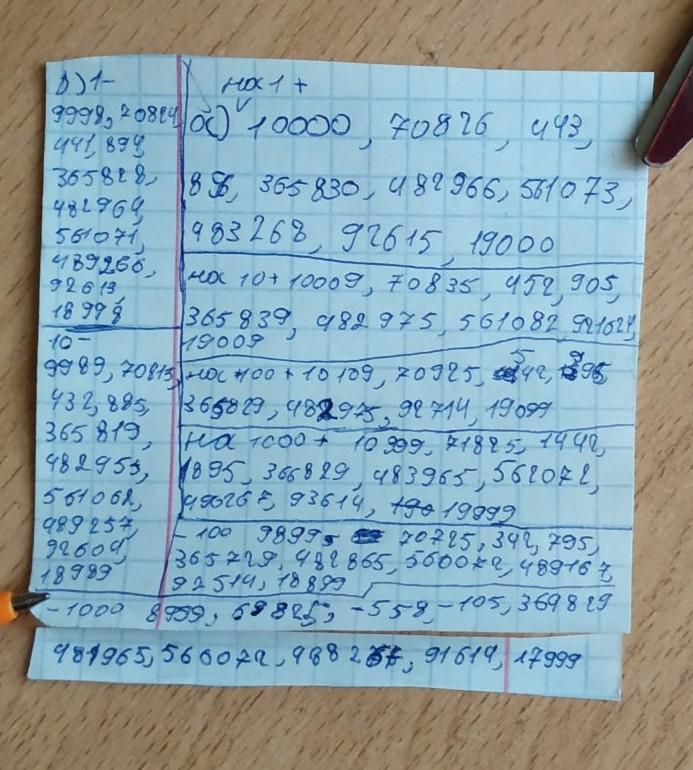 в) 1-
9998, 70824,
441, 894,
365828,
482964,
561071,
489266,
92613
18998
10-
9989, 70815,
432, 885,
365819,
482955,
561062,
489257,
92604,
18989
на 1 +
а) 10000, 70826, 443,
896, 365830, 482966, 561073,
483268, 92615, 19000
на 10 + 10009, 70835, 452, 905,
365839, 482975, 561082, 921624,
19009
на 100 + 10109, 70925, 542,
365829, 482975, 92714, 19099
на 1000 + 10999, 71825, 1442,
1895, 366829, 483965, 562072,
490267, 93614, 19999
-100 9899, 70725, 342, 795,
365729, 482865, 560072, 489167,
92514, 18899
-1000 8999, 69825, -558, -105, 369829
481965, 566072, 91614, 17999